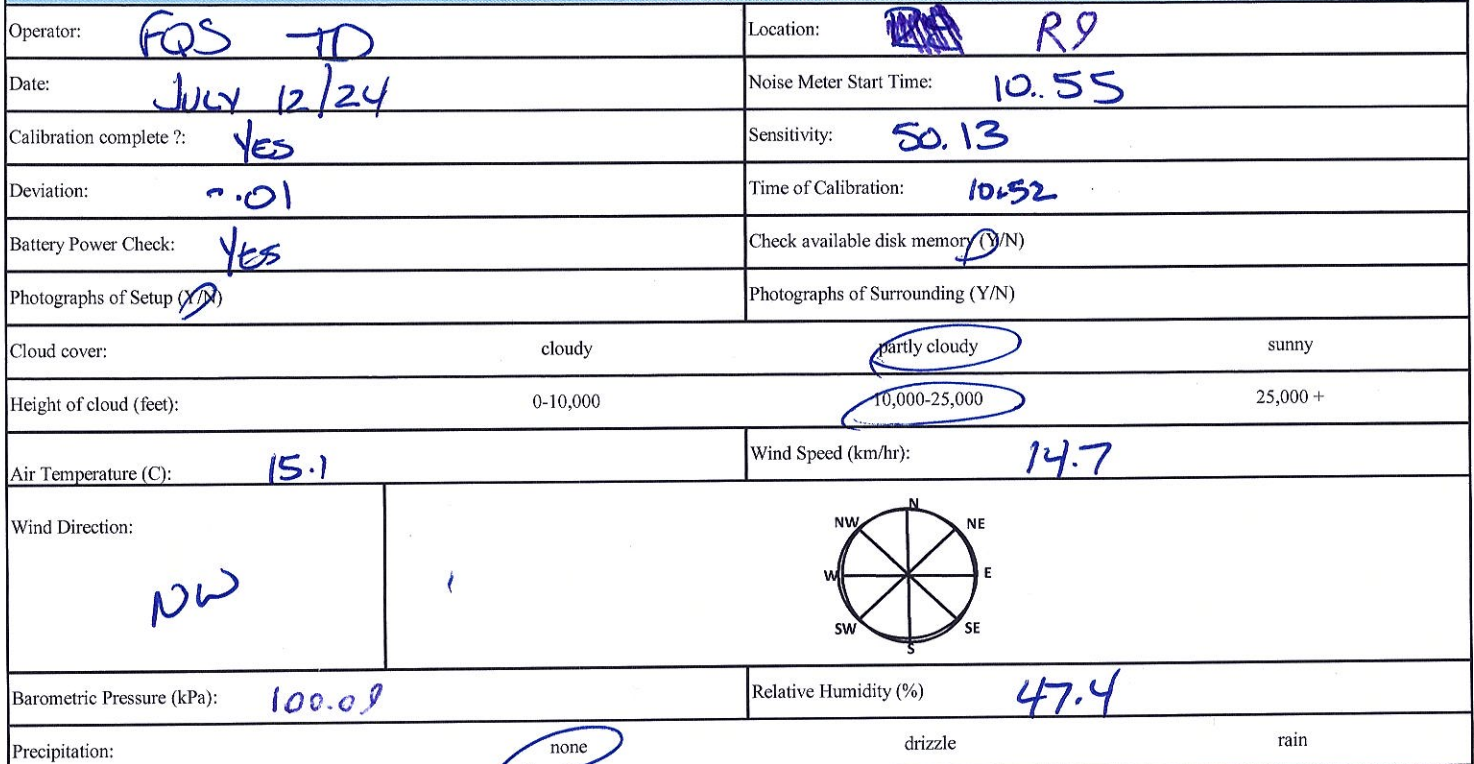 Operator: FQS TD Location: R9
Date: JULY 12/24 Noise Meter Start Time: 10..55
Calibration complete ?: YES Sensitivity: 50.13
Deviation: -.01 Time of Calibration: 10:52
Battery Power Check: YES Check available disk memory (Y/N)
Photographs of Setup (Y/N) Photographs of Surrounding (Y/N)
Cloud cover: cloudy partly cloudy sunny
Height of cloud (feet): 0-10,000 10,000-25,000 25,000 +
Air Temperature (C): 15.1 Wind Speed (km/hr): 14.7
Wind Direction:
NW
N
NW NE
W E
SW SE
S
Barometric Pressure (kPa): 100.09 Relative Humidity (%) 47.4
Precipitation: none drizzle rain